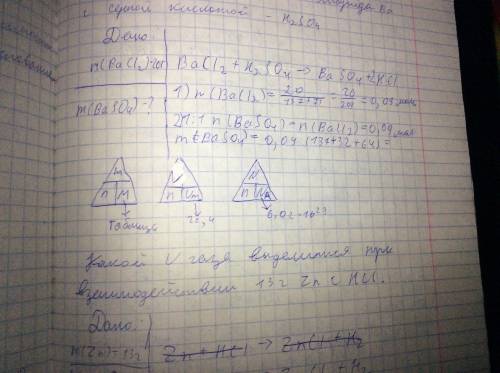 с серной кислотой - H₂SO₄
Дано:
m(BaCl₂)=20г
BaCl₂ + H₂SO₄ → BaSO₄ + 2HCl
m(BaSO₄)-?
1) n(BaCl₂)= 20/137+71 = 20/208 = 0,09 моль
2) 1:1 n(BaSO₄)=n(BaCl₂)=0,09 моль
m(BaSO₄)= 0,09 (137+32+64)=
m n M
V n Vm
N n NA
Таблица
22,4
6,02·10²³
Какой V газа выделится при
взаимодействии 13г Zn с HCl.
Дано:
m(Zn)=13г
Zn + HCl → ZnCl + H₂